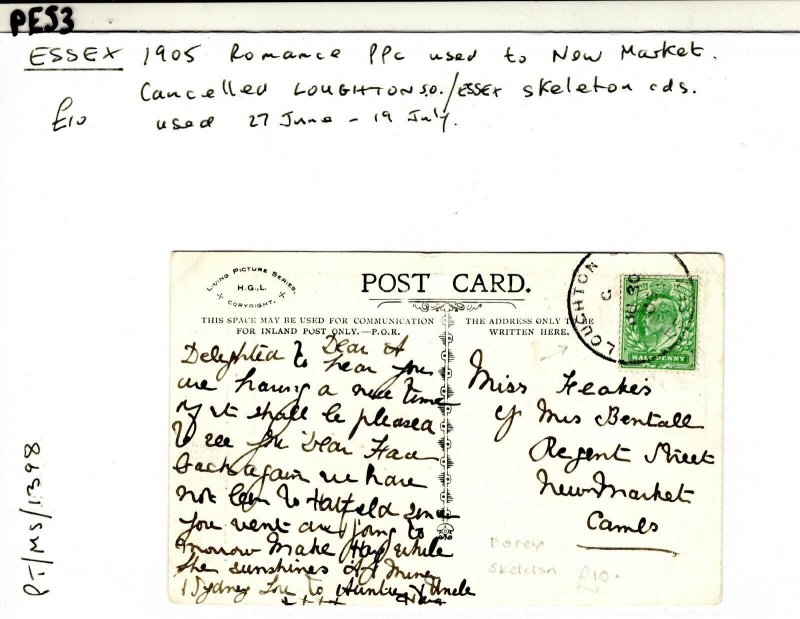 PES3
ESSEX 1905 Romance PPC used to New Market.
Cancelled LOUGHTON S.O./ESSEX skeleton cds.
£10 used 27 June - 19 July.
LIVING PICTURE SERIES.
H.G.L.
COPYRIGHT.
POST CARD.
THIS SPACE MAY BE USED FOR COMMUNICATION
FOR INLAND POST ONLY.—P.O.R.
THE ADDRESS ONLY TO BE
WRITTEN HERE.
LOUGHTON
HALF PENNY
Dear A
Delighted to hear you
are having a nice time
shall be pleased
to see Dear Face
back again we have
not been to Hatfield since
you went are going to
morrow Make Hay while
the sunshines
Sydney Love to Auntie & Uncle
Miss Feakes
c/o Mrs Bentall
Regent Street
New-Market
Cambs
skeleton £10.
PT/MS/1398